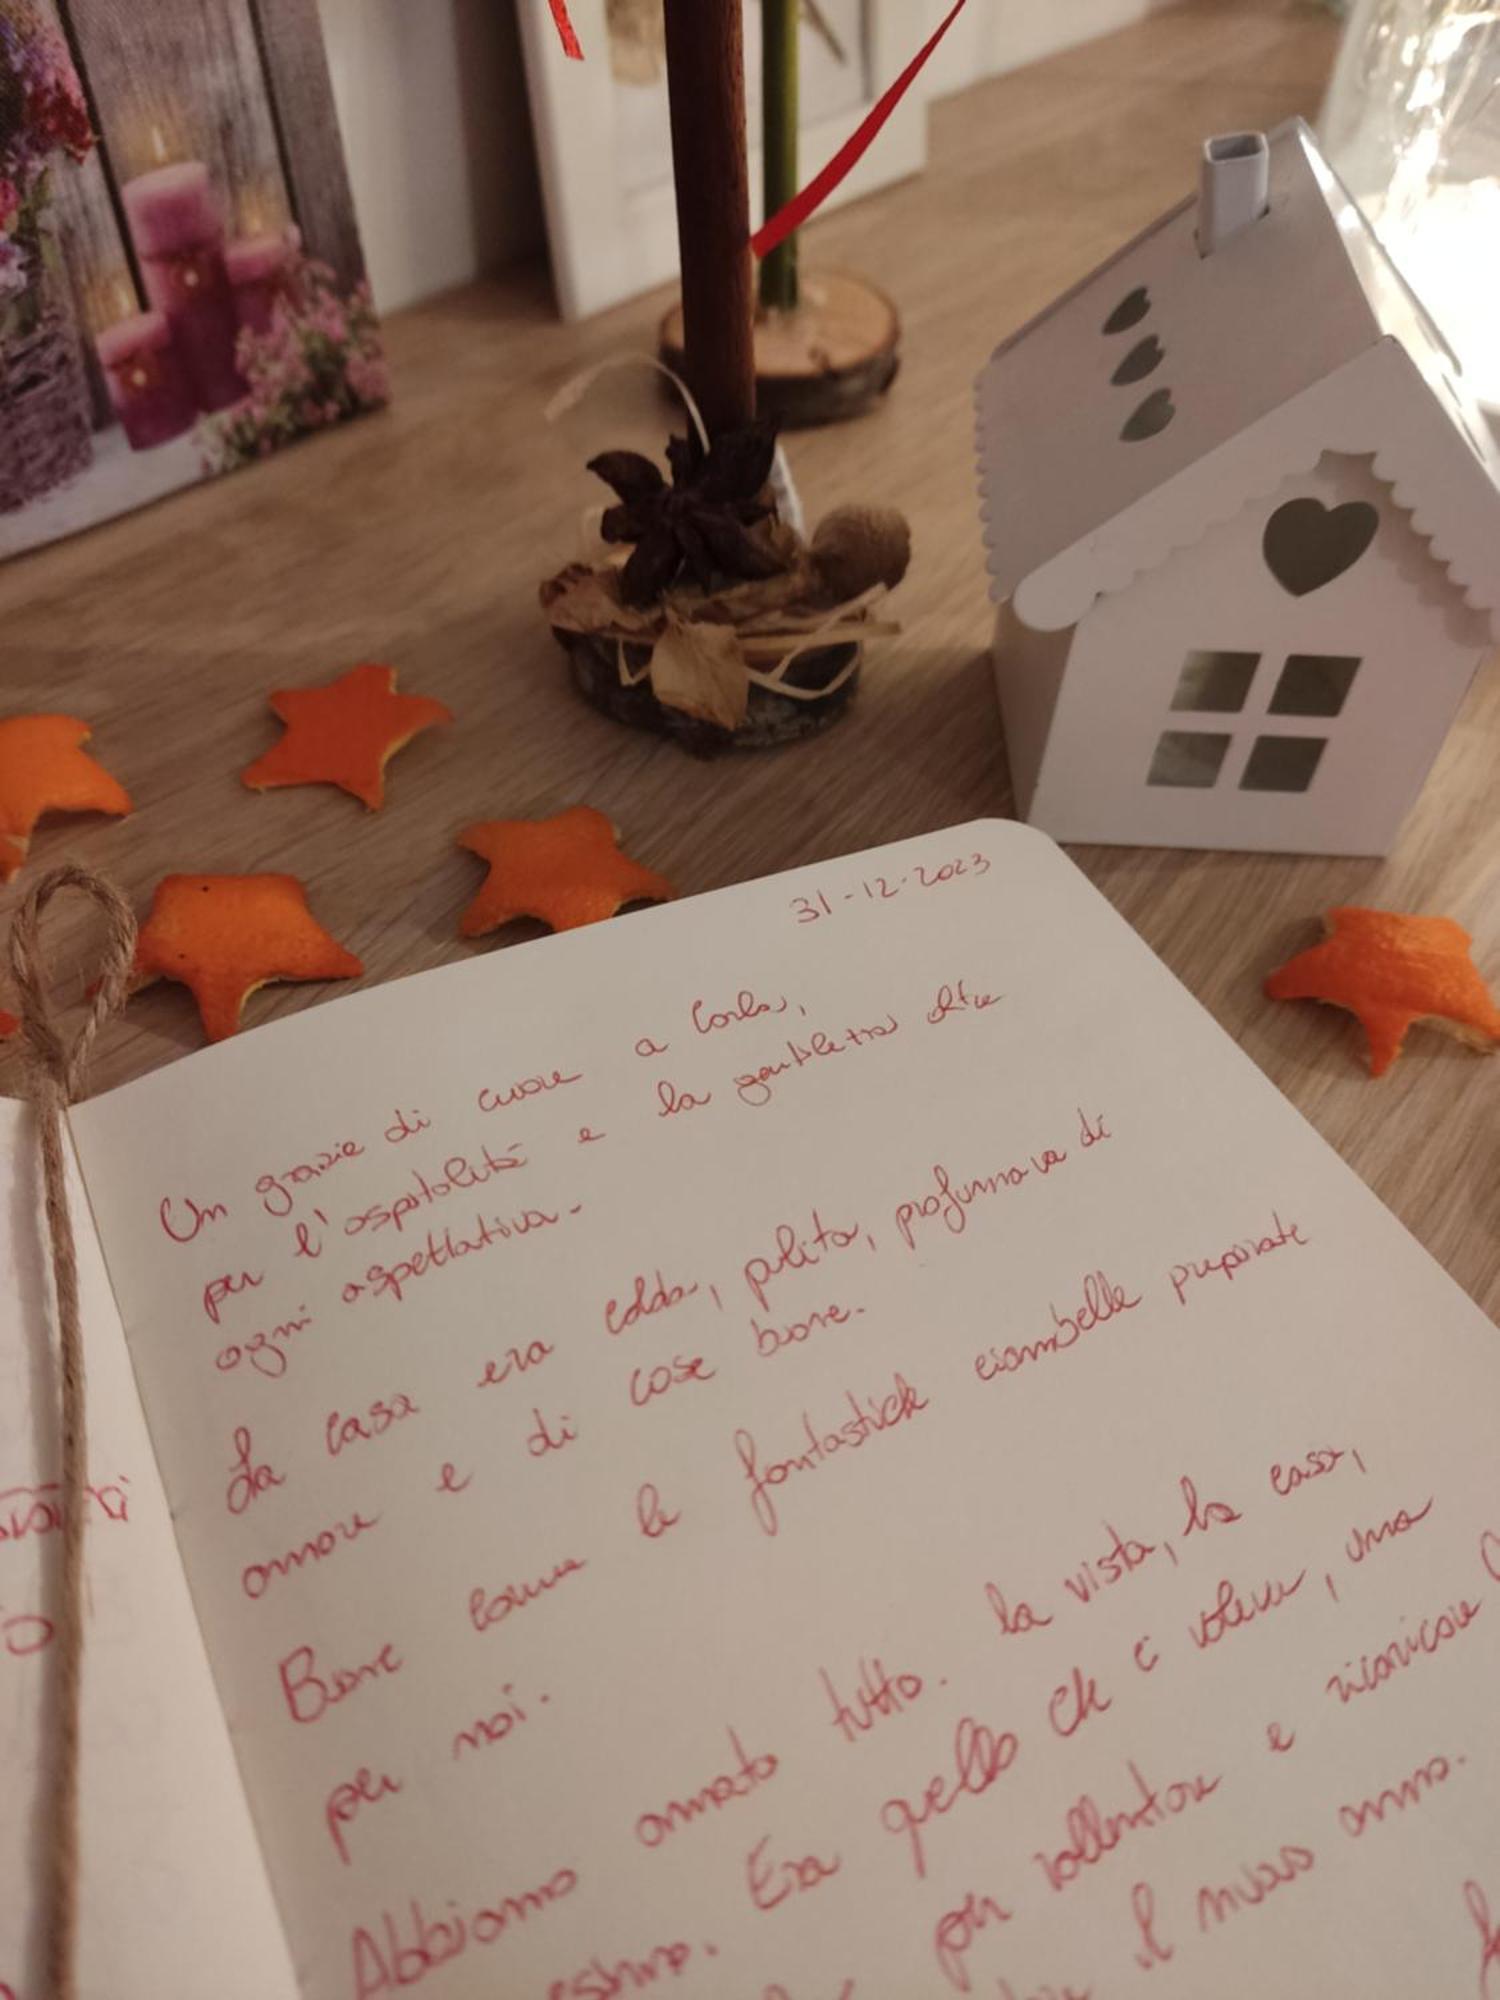 31-12-2023
Un grazie di cuore a Carla,
per l'ospitalità e la gentilezza oltre
ogni aspettativa.
La casa era calda, pulita, profumava di
amore e di cose buone.
Buone come le fantastiche ciambelle preparate
per noi.
Abbiamo amato tutto. la vista, la casa,
Era quello che ci voleva, una
per rallentare e ricaricare
il nuovo anno.